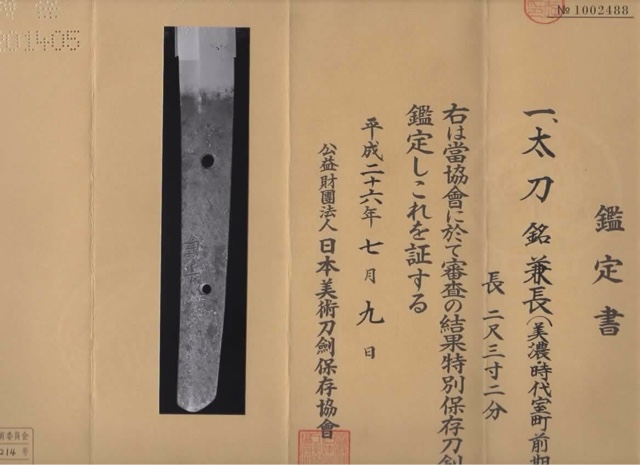 № 1002488
鑑定書
一、太刀 銘 兼長(美濃・時代室町前期
長 二尺三寸二分
右は當協會に於て審査の結果特別保存刀剣
鑑定しこれを証する
平成二十六年七月九日
公益財團法人 日本美術刀劍保存協會
201405
委員会
214 号